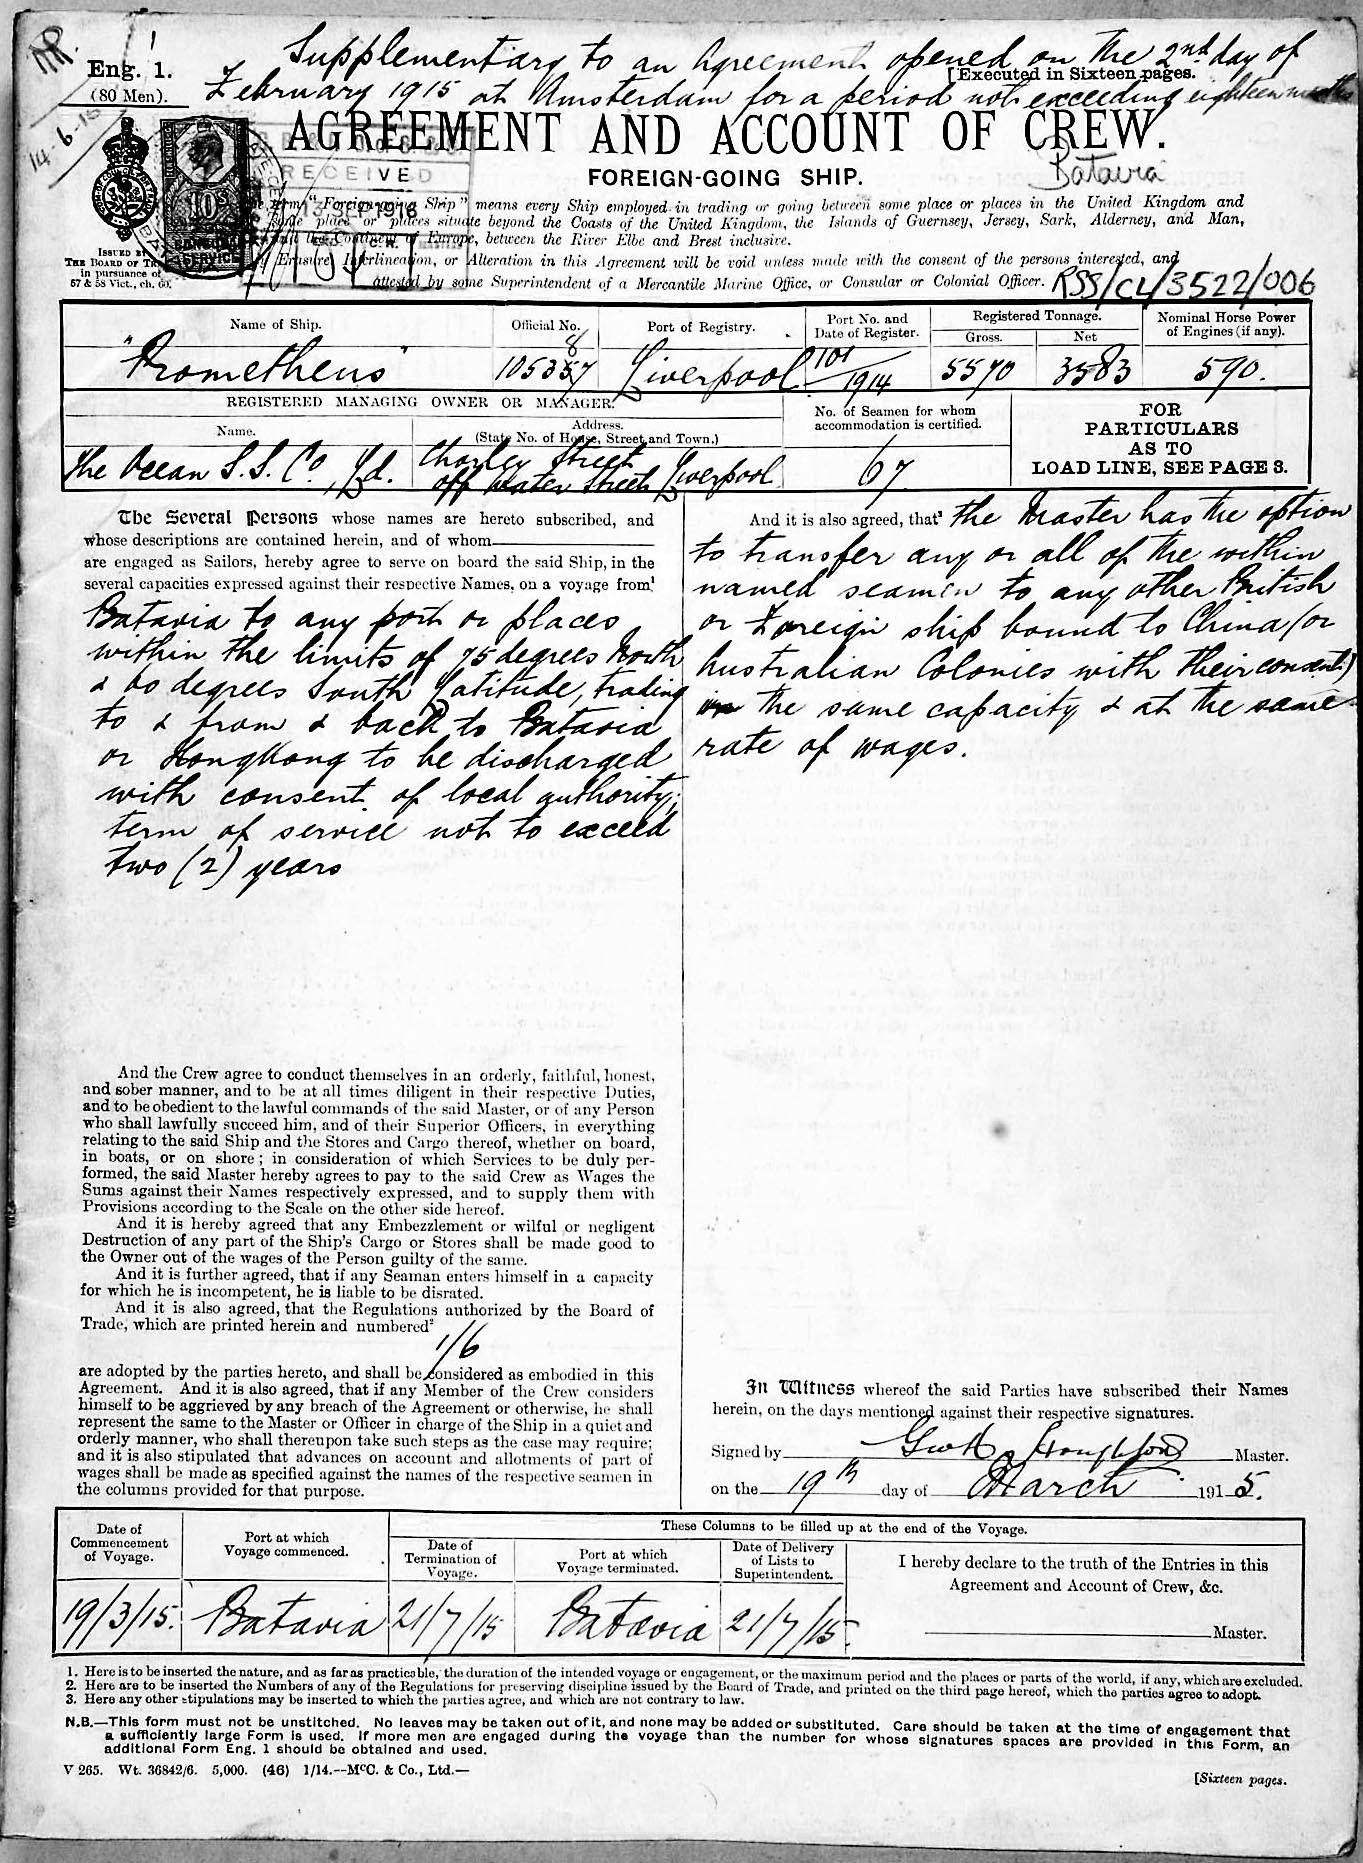 Supplementary to an Agreement opened on the 2nd day of
Eng. 1.
[Executed in Sixteen pages.
(80 Men).
February 1915 at Amsterdam for a period not exceeding eighteen months
14-6-16
AGREEMENT AND ACCOUNT OF CREW.
RECEIVED
FOREIGN-GOING SHIP.
Batavia
10s
term "Foreign-going Ship" means every Ship employed in trading or going between some place or places in the United Kingdom and
some place or places situate beyond the Coasts of the United Kingdom, the Islands of Guernsey, Jersey, Sark, Alderney, and Man,
and the Continent of Europe, between the River Elbe and Brest inclusive.
Erasure, Interlineation, or Alteration in this Agreement will be void unless made with the consent of the persons interested, and
attested by some Superintendent of a Mercantile Marine Office, or Consular or Colonial Officer.
RSS/CL/3522/006
ISSUED BY
THE BOARD OF TR
in pursuance of
57 & 58 Vict., ch. 60.
Name of Ship.
Official No.
Port of Registry.
Port No. and
Date of Register.
Registered Tonnage.
Gross.
Net
Nominal Horse Power
of Engines (if any).
"Prometheus"
Liverpool
101/1914
5570
3583
590.
REGISTERED MANAGING OWNER OR MANAGER.
Name.
Address.
(State No. of House, Street, and Town.)
No. of Seamen for whom
accommodation is certified.
FOR
PARTICULARS
AS TO
LOAD LINE, SEE PAGE 3.
The Ocean S.S. Co., Ld.
Chorley Street
off Water Street Liverpool
67
The Several Persons whose names are hereto subscribed, and
whose descriptions are contained herein, and of whom
are engaged as Sailors, hereby agree to serve on board the said Ship, in the
several capacities expressed against their respective Names, on a voyage from¹
Batavia to any port or places
within the limits of 75 degrees North
& 60 degrees South Latitude, trading
to & from & back to Batavia
or HongKong to be discharged
with consent of local authority;
term of service not to exceed
two (2) years
And the Crew agree to conduct themselves in an orderly, faithful, honest,
and sober manner, and to be at all times diligent in their respective Duties,
and to be obedient to the lawful commands of the said Master, or of any Person
who shall lawfully succeed him, and of their Superior Officers, in everything
relating to the said Ship and the Stores and Cargo thereof, whether on board,
in boats, or on shore; in consideration of which Services to be duly per-
formed, the said Master hereby agrees to pay to the said Crew as Wages the
Sums against their Names respectively expressed, and to supply them with
Provisions according to the Scale on the other side hereof.
And it is hereby agreed that any Embezzlement or wilful or negligent
Destruction of any part of the Ship's Cargo or Stores shall be made good to
the Owner out of the wages of the Person guilty of the same.
And it is further agreed, that if any Seaman enters himself in a capacity
for which he is incompetent, he is liable to be disrated.
And it is also agreed, that the Regulations authorized by the Board of
Trade, which are printed herein and numbered²
1/6
are adopted by the parties hereto, and shall be considered as embodied in this
Agreement. And it is also agreed, that if any Member of the Crew considers
himself to be aggrieved by any breach of the Agreement or otherwise, he shall
represent the same to the Master or Officer in charge of the Ship in a quiet and
orderly manner, who shall thereupon take such steps as the case may require;
and it is also stipulated that advances on account and allotments of part of
wages shall be made as specified against the names of the respective seamen in
the columns provided for that purpose.
And it is also agreed, that³ the Master has the option
to transfer any or all of the within
named seamen to any other British
or Foreign ship bound to China (or
Australian Colonies with their consent)
in the same capacity & at the same
rate of wages.
In Witness whereof the said Parties have subscribed their Names
herein, on the days mentioned against their respective signatures.
Signed by Master.
on the 19th day of March 1915.
Date of
Commencement
of Voyage.
Port at which
Voyage commenced.
These Columns to be filled up at the end of the Voyage.
Date of
Termination of
Voyage.
Port at which
Voyage terminated.
Date of Delivery
of Lists to
Superintendent.
I hereby declare to the truth of the Entries in this
Agreement and Account of Crew, &c.
Master.
19/3/15.
Batavia
21/7/15
Batavia
21/7/15.
1. Here is to be inserted the nature, and as far as practicable, the duration of the intended voyage or engagement, or the maximum period and the places or parts of the world, if any, which are excluded.
2. Here are to be inserted the Numbers of any of the Regulations for preserving discipline issued by the Board of Trade, and printed on the third page hereof, which the parties agree to adopt.
3. Here any other stipulations may be inserted to which the parties agree, and which are not contrary to law.
N.B.—This form must not be unstitched. No leaves may be taken out of it, and none may be added or substituted. Care should be taken at the time of engagement that
a sufficiently large Form is used. If more men are engaged during the voyage than the number for whose signatures spaces are provided in this Form, an
additional Form Eng. 1 should be obtained and used.
V 265. Wt. 36842/6. 5,000. (46) 1/14.--McC. & Co., Ltd.—
[Sixteen pages.